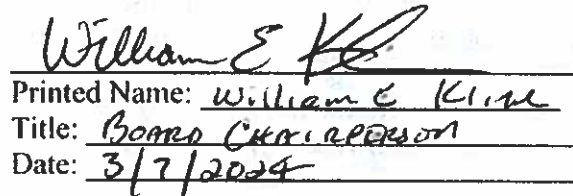 William E Kline
Printed Name: William E Kline
Title: Board Chairperson
Date: 3/7/2024